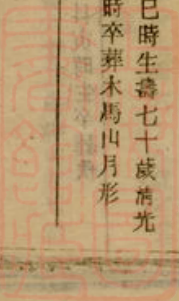 巳時生壽七十歲清光
時卒葬木馬山月形